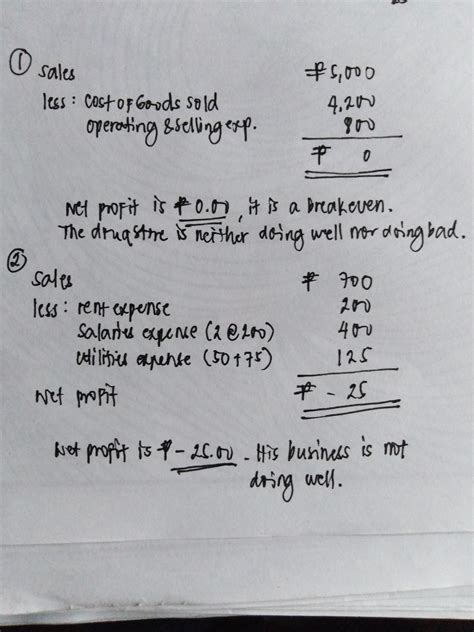 ① Sales ₱5,000
less: Cost of Goods sold 4,200
operating & selling exp. 800
₱ 0
Net profit is ₱0.00, it is a breakeven.
The drugstore is neither doing well nor doing bad.
② Sales ₱ 700
less: rent expense 200
Salaries expense (2@200) 400
Utilities expense (50+75) 125
Net profit ₱ -25
Net profit is ₱-25.00. His business is not
doing well.